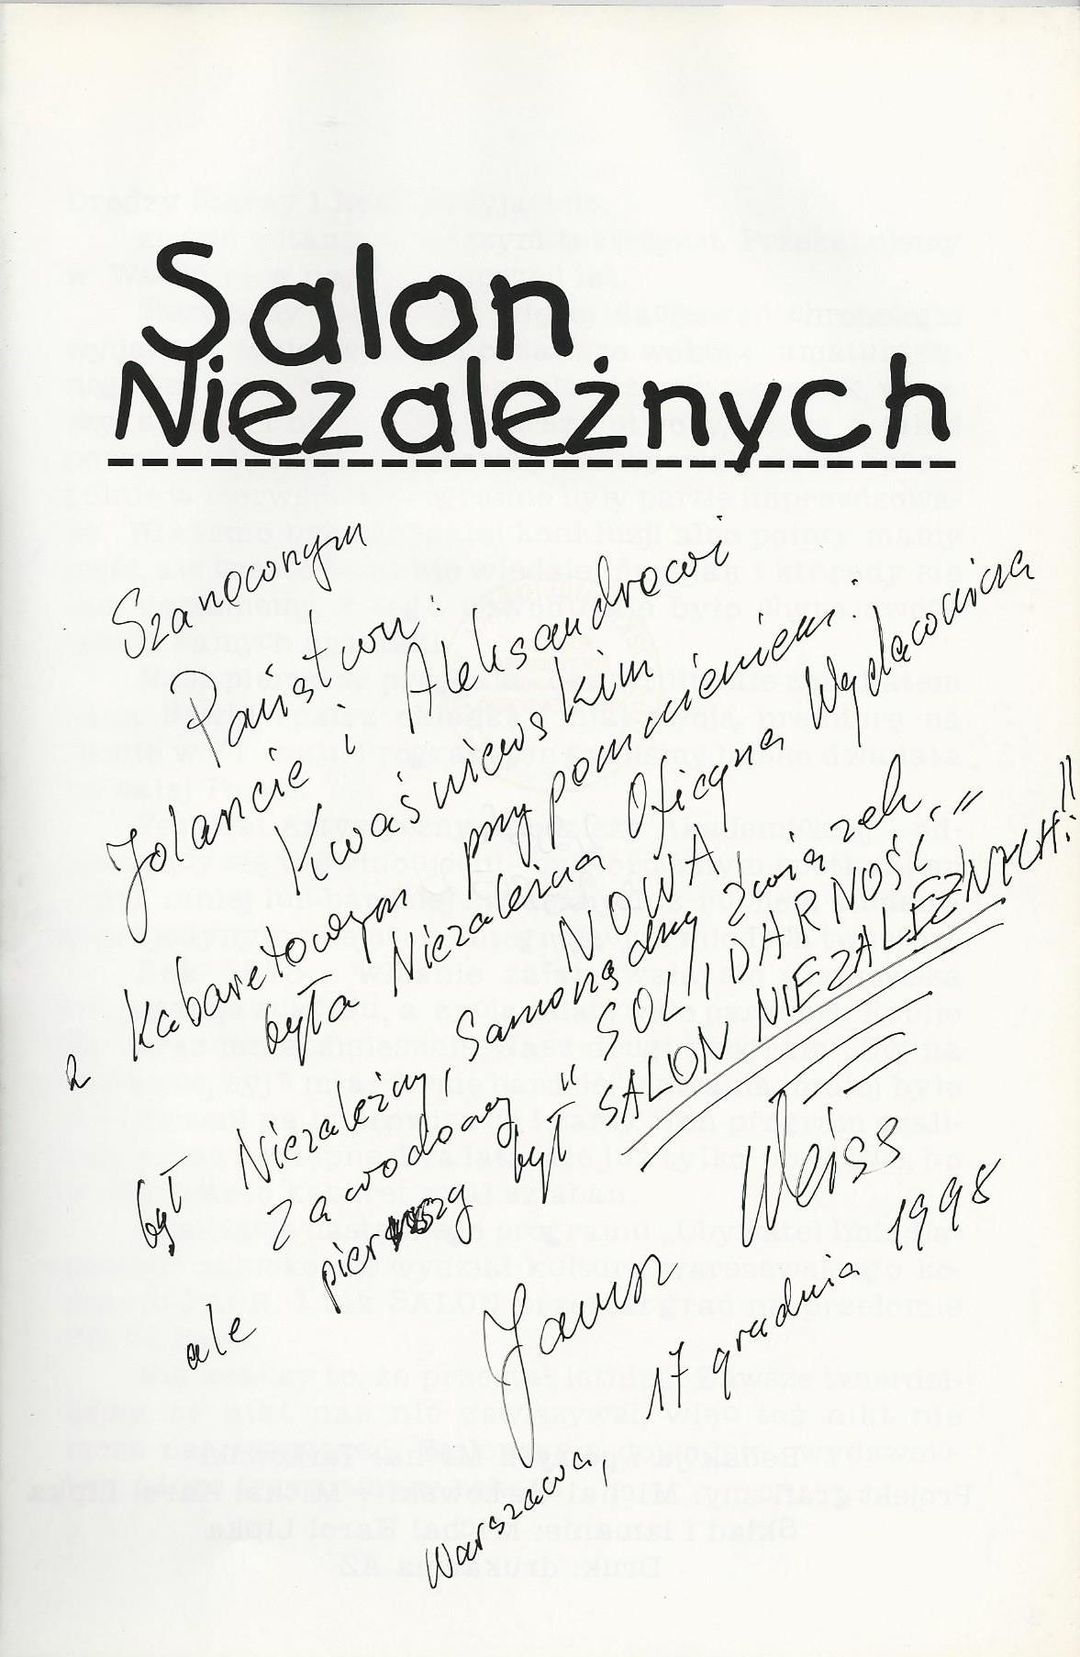 Salon
Niezależnych
Szanownym
Państwu:
Jolancie i Aleksandrowi
Kwaśniewskim
z kabaretowym przypomnieniem:
była Niezależna Oficyna Wydawnicza
NOWA,
był Niezależny, Samorządny Związek
Zawodowy "SOLIDARNOŚĆ,"
ale pierwszy był SALON NIEZALEŻNYCH!!
Janusz Weiss
Warszawa, 17 grudnia 1998
Skład i łamanie: Michał Karol Lipka